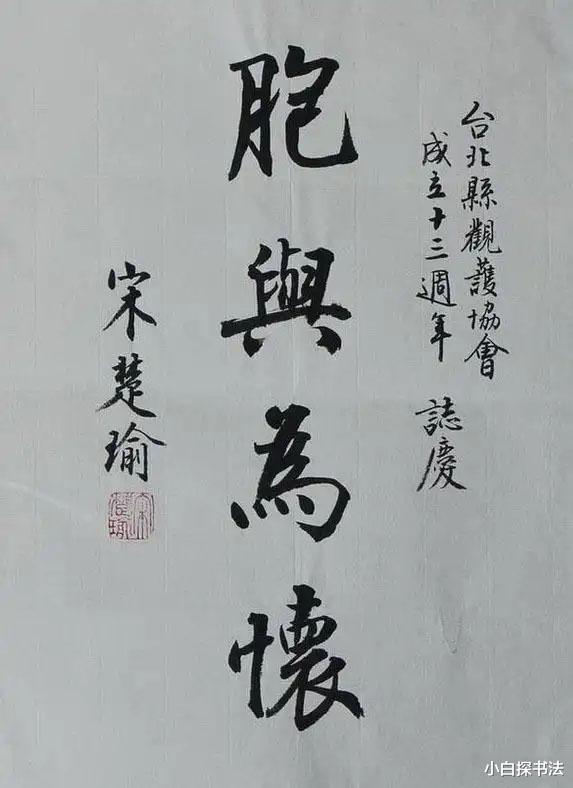 台北縣觀護協會
成立十三週年 誌慶
胞與為懷
宋楚瑜
宋楚瑜
小白探书法